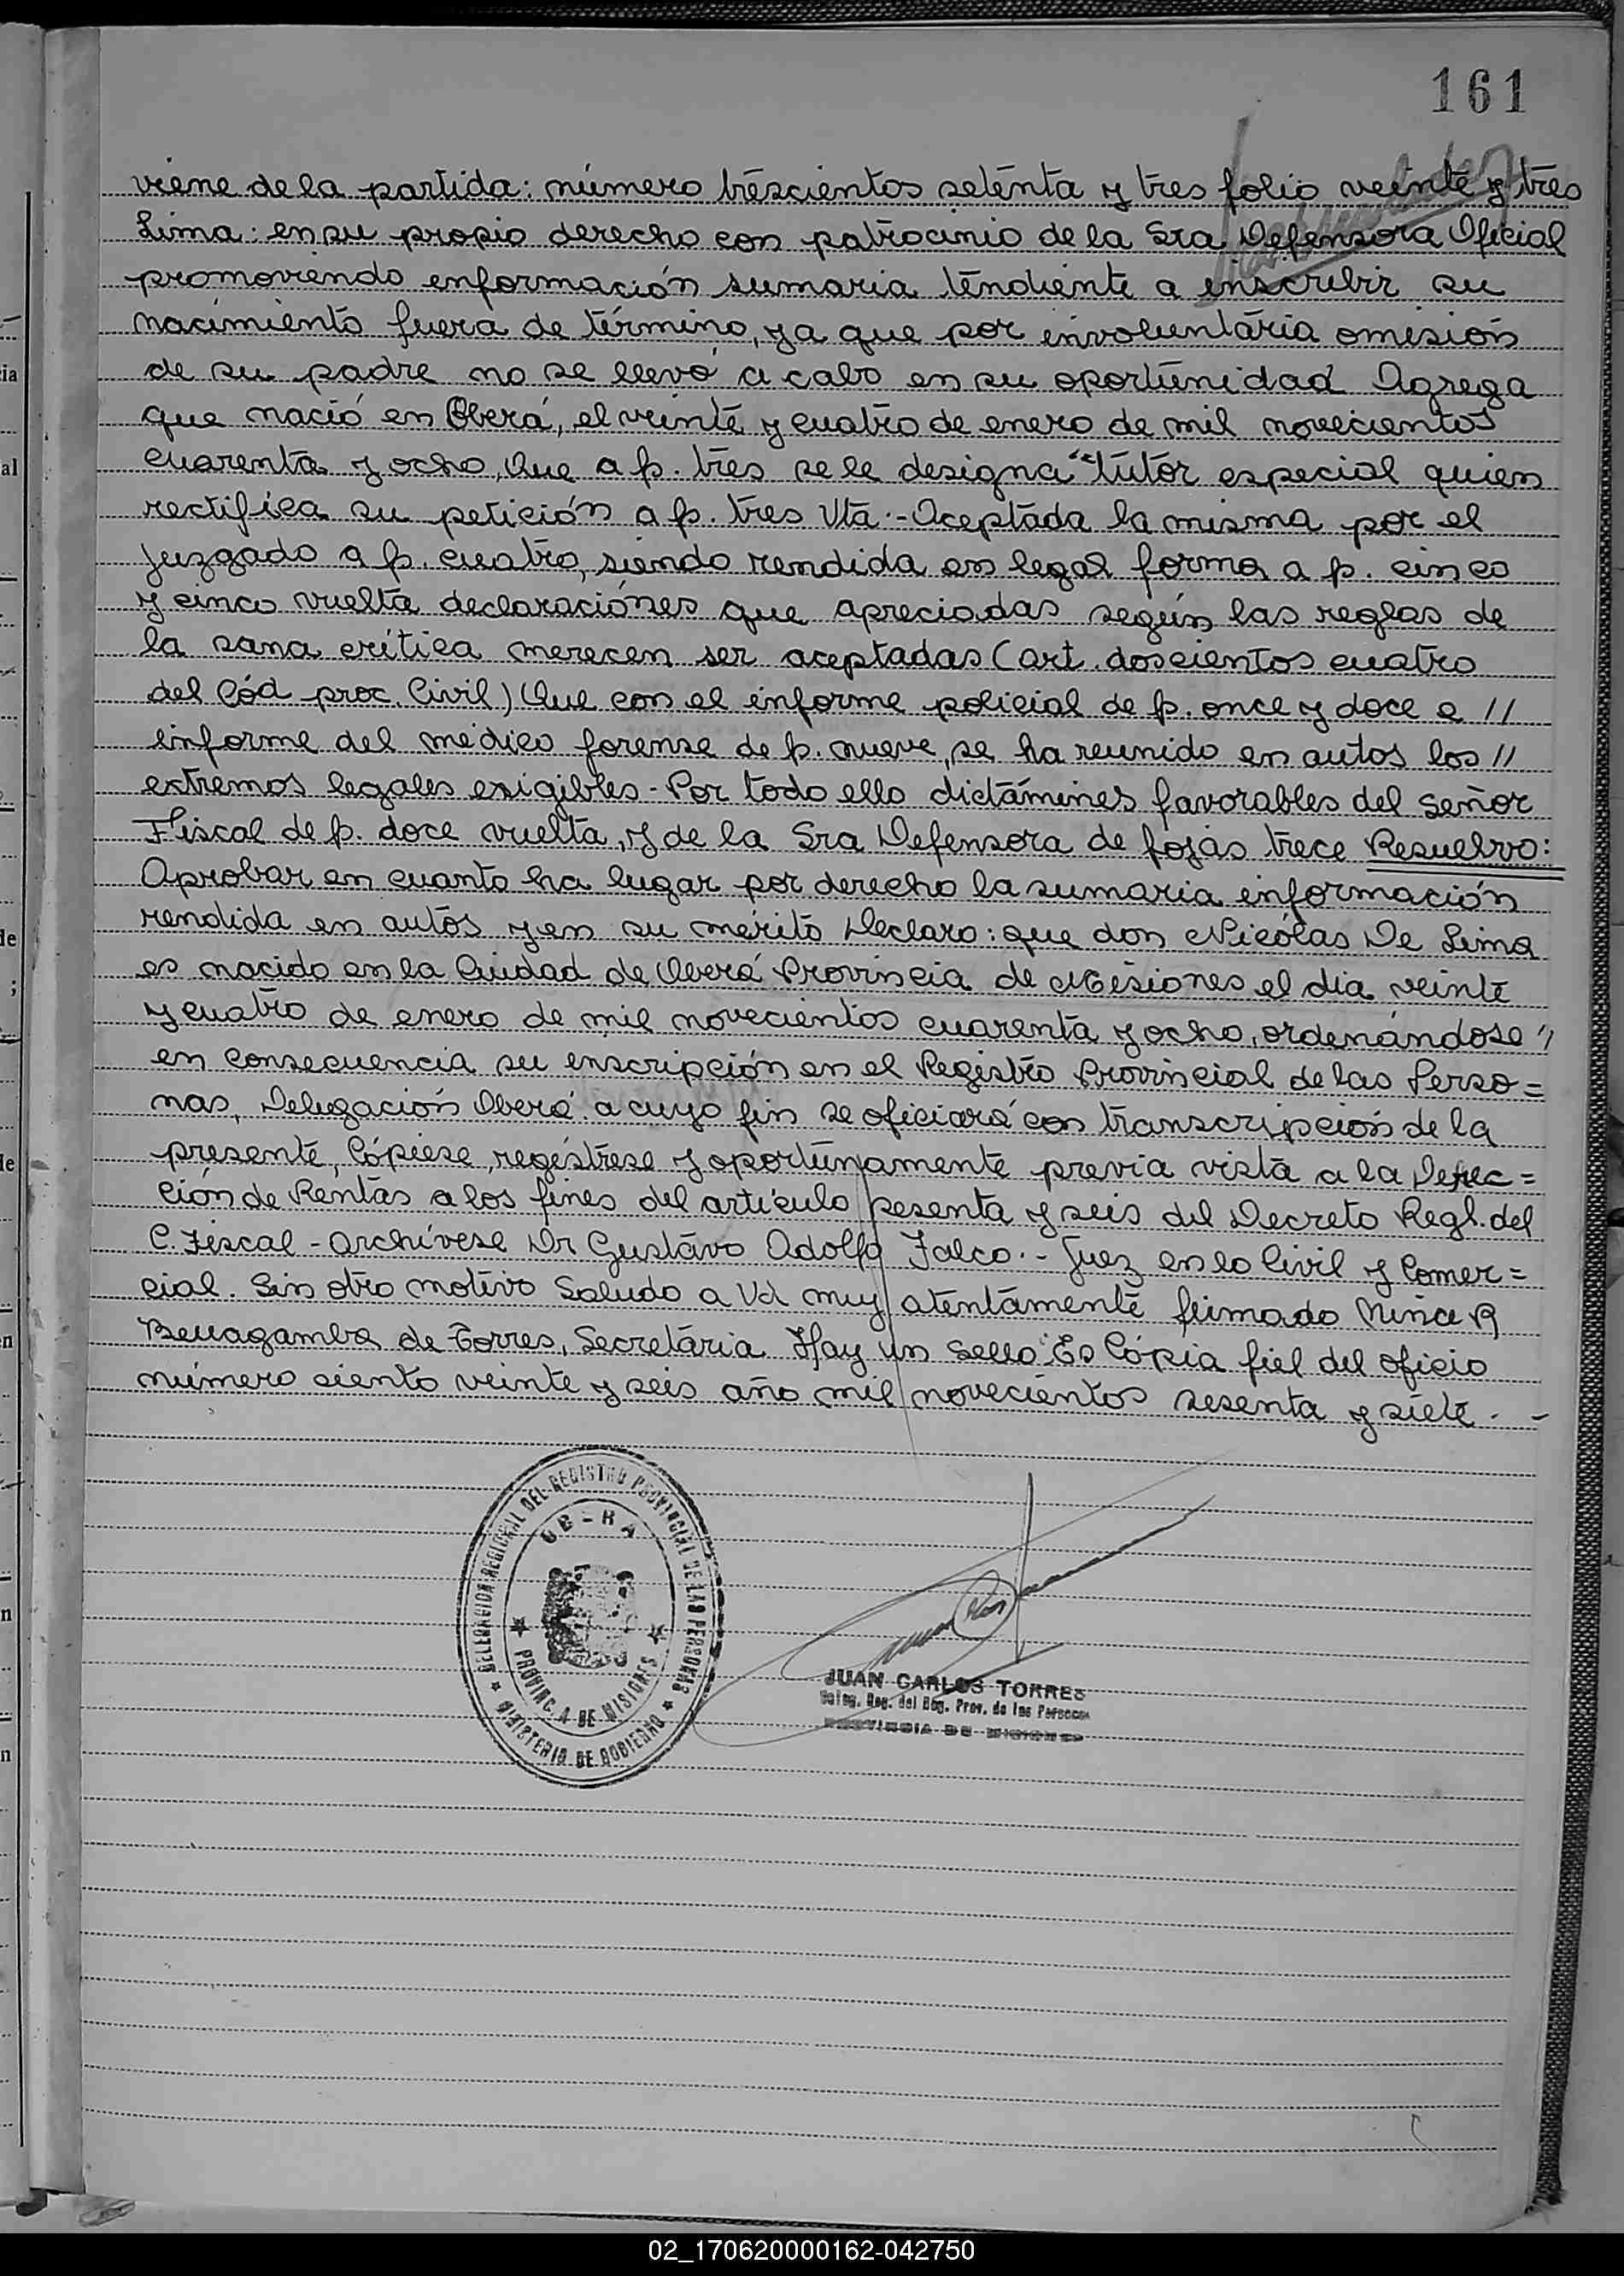 161
viene de la partida: número trescientos setenta y tres folio veinte y tres
Lima: en su propio derecho con patrocinio de la Sra Defensora Oficial
promoviendo enformación sumaria tendiente a enscribir su
nacimiento fuera de término, ya que por envoluntária omisión
de su padre no se llevó a cabo en su oportunidad Agrega
que nació en Oberá, el veinte y cuatro de enero de mil novecientos
cuarenta y ocho, Que a f. tres se le designa tutor especial quien
rectifica su petición a f. tres Vta.- Aceptada la misma por el
juzgado a f. cuatro, siendo rendida en legal forma a f. cinco
y cinco vuelta declaraciónes que apreciadas según las reglas de
la sana crítica merecen ser aceptadas (art. doscientos cuatro
del Cód proc. Civil) Que con el informe policial de f. once y doce e //
informe del médico forense de f. nueve, se ha reunido en autos los //
extremos legales exigibles - Por todo ello dictámines favorables del señor
Fiscal de f. doce vuelta, y de la Sra Defensora de fojas trece Resuelvo:
Aprobar en cuanto ha lugar por derecho la sumaria enformación
rendida en autos y en su mérito Declaro: que don Nicolas De Lima
es nacido en la Ciudad de Oberá Provincia de Misiones el dia veinte
y cuatro de enero de mil novecientos cuarenta y ocho, ordenándose //
en consecuencia su enscripción en el Registro Provincial de las Perso=
nas, Delegación Oberá a cuyo fin se oficiará con transcripción de la
presente, Cópiese, regístrese y oportunamente previa vista a la Direc=
ción de Rentas a los fines del artículo sesenta y seis del Decreto Regl. del
C. Fiscal - archívese Dr Gustavo Adolfo Falco.- Juez en lo Civil y Comer=
cial. Sin otro motivo Saludo a Vd muy atentamente firmado
Bevagamba de Torres, Secretária Hay un sello Es Cópia fiel del oficio
número siento veinte y seis año mil novecientos sesenta y siete. -
DELEGACION REGIONAL DEL REGISTRO PROVINCIAL DE LAS PERSONAS
OBERA
PROVINCIA DE MISIONES
MINISTERIO DE GOBIERNO
JUAN CARLOS TORRES
Deleg. Reg. del Reg. Prov. de las Personas
PROVINCIA DE MISIONES
02_170620000162-042750